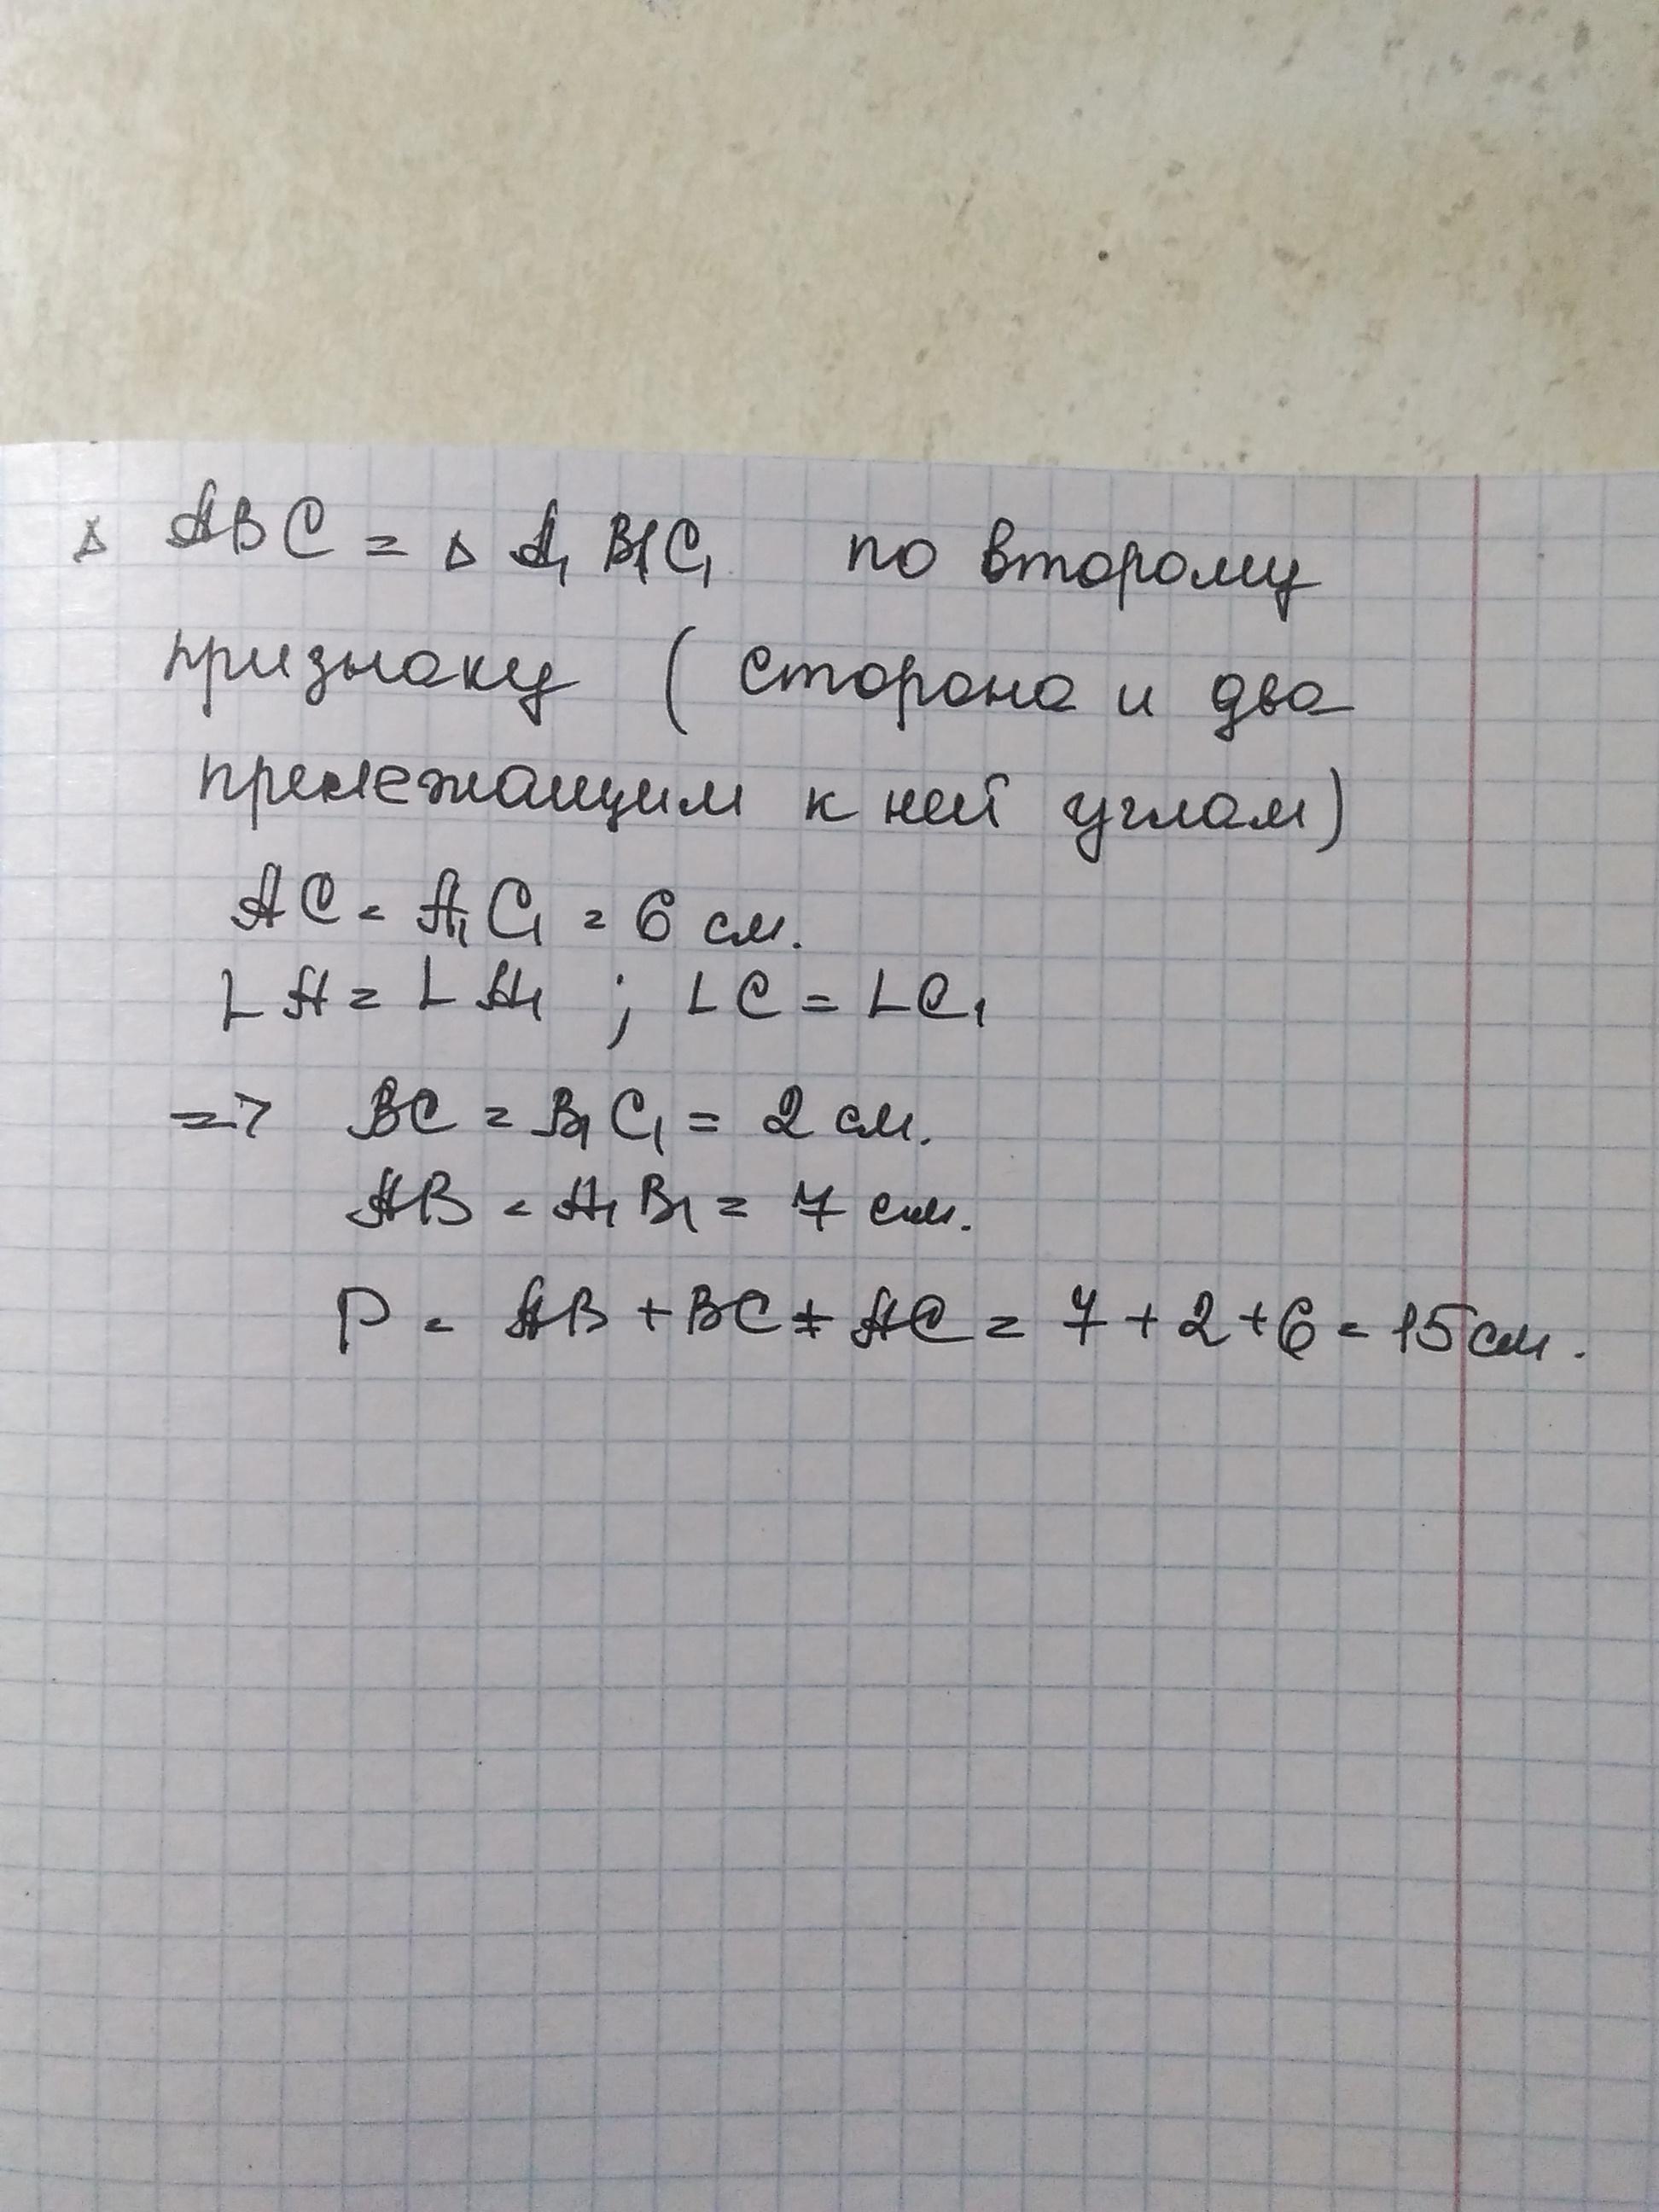 △ ABC = △ A₁B₁C₁ по второму
признаку (сторона и два
прилежащим к ней углам)
AC = A₁C₁ = 6 см.
∠A = ∠A₁ ; ∠C = ∠C₁
=> BC = B₁C₁ = 2 см.
AB = A₁B₁ = 7 см.
P = AB + BC + AC = 7 + 2 + 6 = 15 см.